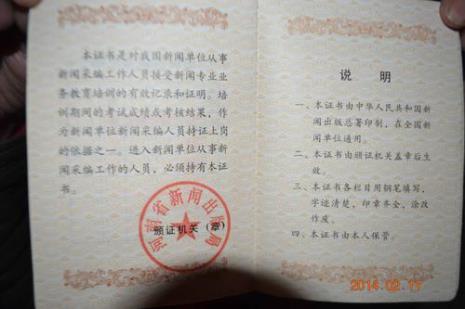 本证书是对我国新闻单位从事
新闻采编工作人员接受新闻专业业
务教育培训的有效记录和证明。培
训期间的考试成绩或考核结果，作
为新闻单位新闻采编人员持证上岗
的依据之一。进入新闻单位从事新
闻采编工作的人员，必须持有本证
书。
河南省新闻出版局
颁证机关（章）
说 明
一、本证书由中华人民共和国新
闻出版总署印制，在全国新
闻单位通用。
二、本证书由颁证机关盖章后生
效。
三、本证书各栏目用钢笔填写，
字迹清楚，印章齐全，涂改
作废。
四、本证书由本人保管。
2014.02.17